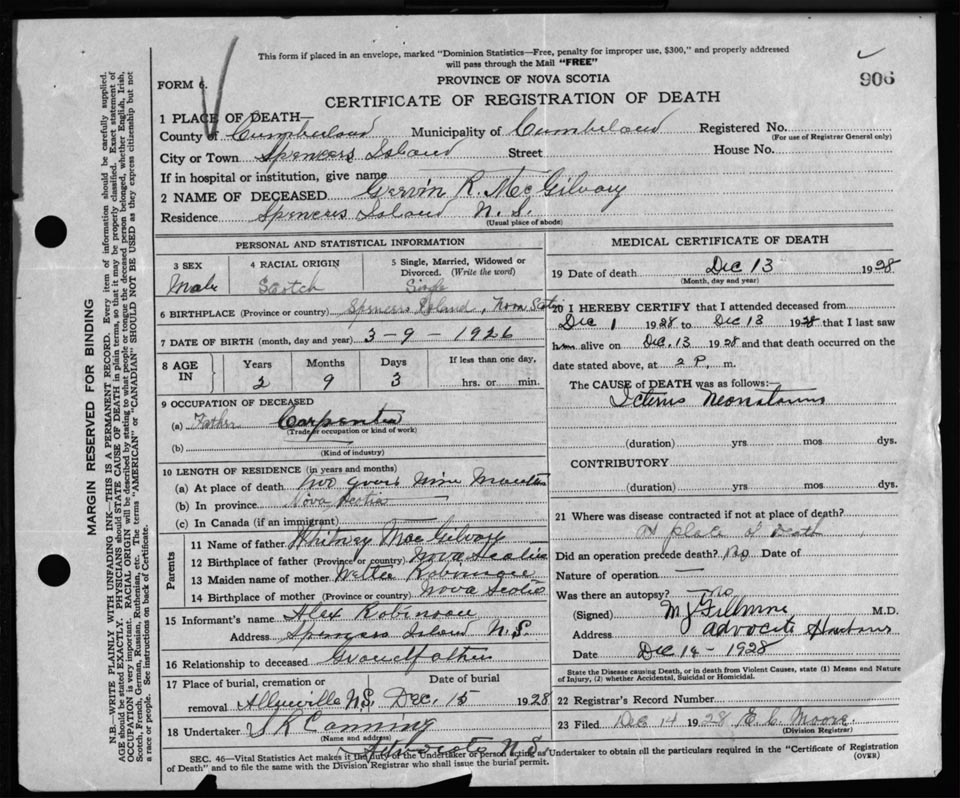 This form if placed in an envelope, marked "Dominion Statistics—Free, penalty for improper use, $300," and properly addressed
will pass through the Mail "FREE"
906
FORM 6.
PROVINCE OF NOVA SCOTIA
CERTIFICATE OF REGISTRATION OF DEATH
1 PLACE OF DEATH—
County of Cumberland Municipality of Cumberland Registered No.
(For use of Registrar General only)
City or Town Spencers Island Street House No.
If in hospital or institution, give name
2 NAME OF DECEASED Gervin R. McGilvary
Residence Spencers Island N.S.
(Usual place of abode)
PERSONAL AND STATISTICAL INFORMATION
3 SEX 4 RACIAL ORIGIN 5 Single, Married, Widowed or
Divorced. (Write the word)
Male Scotch Single
6 BIRTHPLACE (Province or country) Spencers Island, Nova Scotia
7 DATE OF BIRTH (month, day and year) 3-9-1926
8 AGE IN Years Months Days If less than one day,
2 9 3 hrs. or min.
9 OCCUPATION OF DECEASED
(a) Father Carpenter
(Trade or occupation or kind of work)
(b)
(Kind of industry)
10 LENGTH OF RESIDENCE (in years and months)
(a) At place of death two years nine months
(b) In province Nova Scotia
(c) In Canada (if an immigrant)
Parents
11 Name of father Whitney MacGilvary
12 Birthplace of father (Province or country) Nova Scotia
13 Maiden name of mother
14 Birthplace of mother (Province or country) Nova Scotia
15 Informant's name Alex Robinson
Address Spencers Island N.S.
16 Relationship to deceased Grandfather
17 Place of burial, cremation or Date of burial
removal N.S. Dec. 15 1928
18 Undertaker Canning
(Name and address)
Advocate N.S.
MEDICAL CERTIFICATE OF DEATH
19 Date of death Dec 13 1928
(Month, day and year)
20 I HEREBY CERTIFY that I attended deceased from
Dec 1 1928 to Dec 13 1928 that I last saw
him alive on Dec. 13 1928 and that death occurred on the
date stated above, at 2 P. m.
The CAUSE of DEATH was as follows:—
Icterus Neonatorum
(duration) yrs mos dys.
CONTRIBUTORY
(duration) yrs. mos. dys.
21 Where was disease contracted if not at place of death?
At place of death
Did an operation precede death? No Date of
Nature of operation —
Was there an autopsy? No
(Signed) M.D.
Address Advocate Harbour
Date Dec 14-1928
State the Disease Causing Death, or in death from Violent Causes, state (1) Means and Nature
of Injury, (2) whether Accidental, Suicidal or Homicidal.
22 Registrar's Record Number
23 Filed Dec 14 1928 E. C. Moore
(Division Registrar)
SEC. 46—Vital Statistics Act makes it the duty of the Undertaker or person acting as Undertaker to obtain all the particulars required in the "Certificate of Registration
of Death" and to file the same with the Division Registrar who shall issue the burial permit.
(OVER)
MARGIN RESERVED FOR BINDING
N.B.—WRITE PLAINLY WITH UNFADING INK—THIS IS A PERMANENT RECORD. Every item of information should be carefully supplied.
AGE should be stated EXACTLY. PHYSICIANS should STATE CAUSE OF DEATH in plain terms, so that it may be properly classified. Exact statement of
OCCUPATION is very important. RACIAL ORIGIN will be described by stating to what people or tongue the deceased person belonged, whether English, Irish,
Scotch, French, German, Russian, Ruthenian, etc. The terms "AMERICAN" or "CANADIAN" SHOULD NOT BE USED as they express citizenship but not
a race or people. See instructions on back of Certificate.